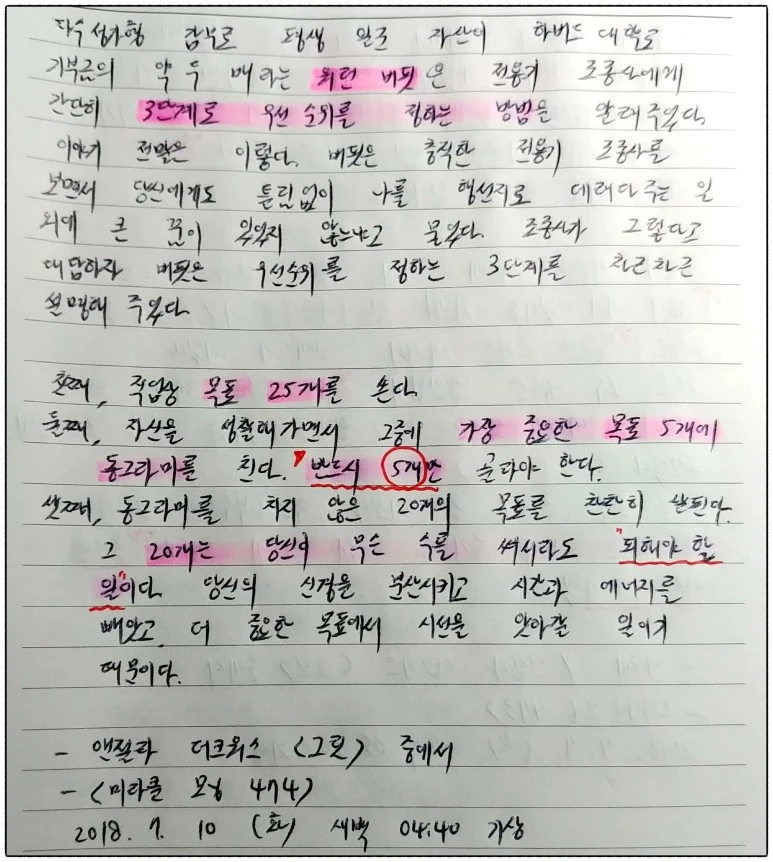 자수성가형 갑부로 평생 일군 자산이 하버드 대학교
기부금의 약 두 배라는 워런 버핏은 전용기 조종사에게
간단히 3단계로 우선 순위를 정하는 방법을 알려주었다.
이야기 전말은 이렇다. 버핏은 충직한 전용기 조종사를
보면서 당신에게도 틀림없이 나를 행선지로 데려다 주는 일
외에 큰 꿈이 있었지 않느냐고 물었다. 조종사가 그렇다고
대답하자 버핏은 우선순위를 정하는 3단계를 차근차근
설명해 주었다.
첫째, 직업상 목표 25개를 쓴다.
둘째, 자신을 성찰해가면서 그중에 가장 중요한 목표 5개에
동그라미를 친다. 반드시 5개만 골라야 한다.
셋째, 동그라미를 치지 않은 20개의 목표를 찬찬히 살핀다.
그 20개는 당신이 무슨 수를 써서라도 "피해야 할
일"이다. 당신의 신경을 분산시키고 시간과 에너지를
빼앗고, 더 중요한 목표에서 시선을 앗아갈 일이기
때문이다.
- 앤절라 더크워스 <그릿> 중에서
- <미라클 모닝 474>
2018. 7. 10 (화) 새벽 04:40 기상